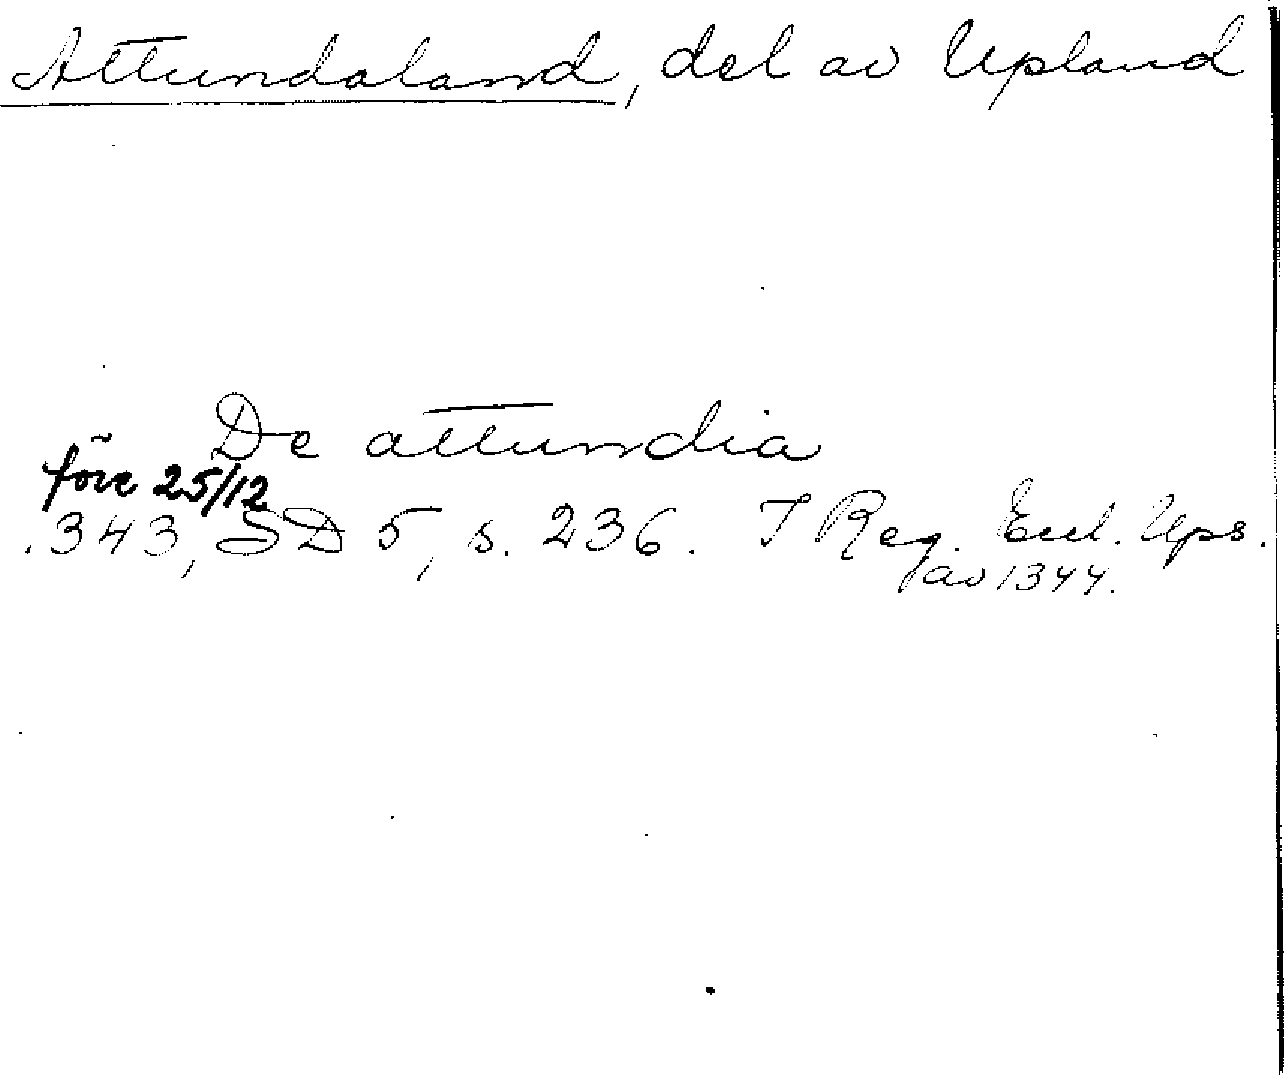 Attundaland, del av Upland
De attundia
före 25/12
.343, SD 5, s. 236. I Reg. Eccl. Ups.
av 1344.